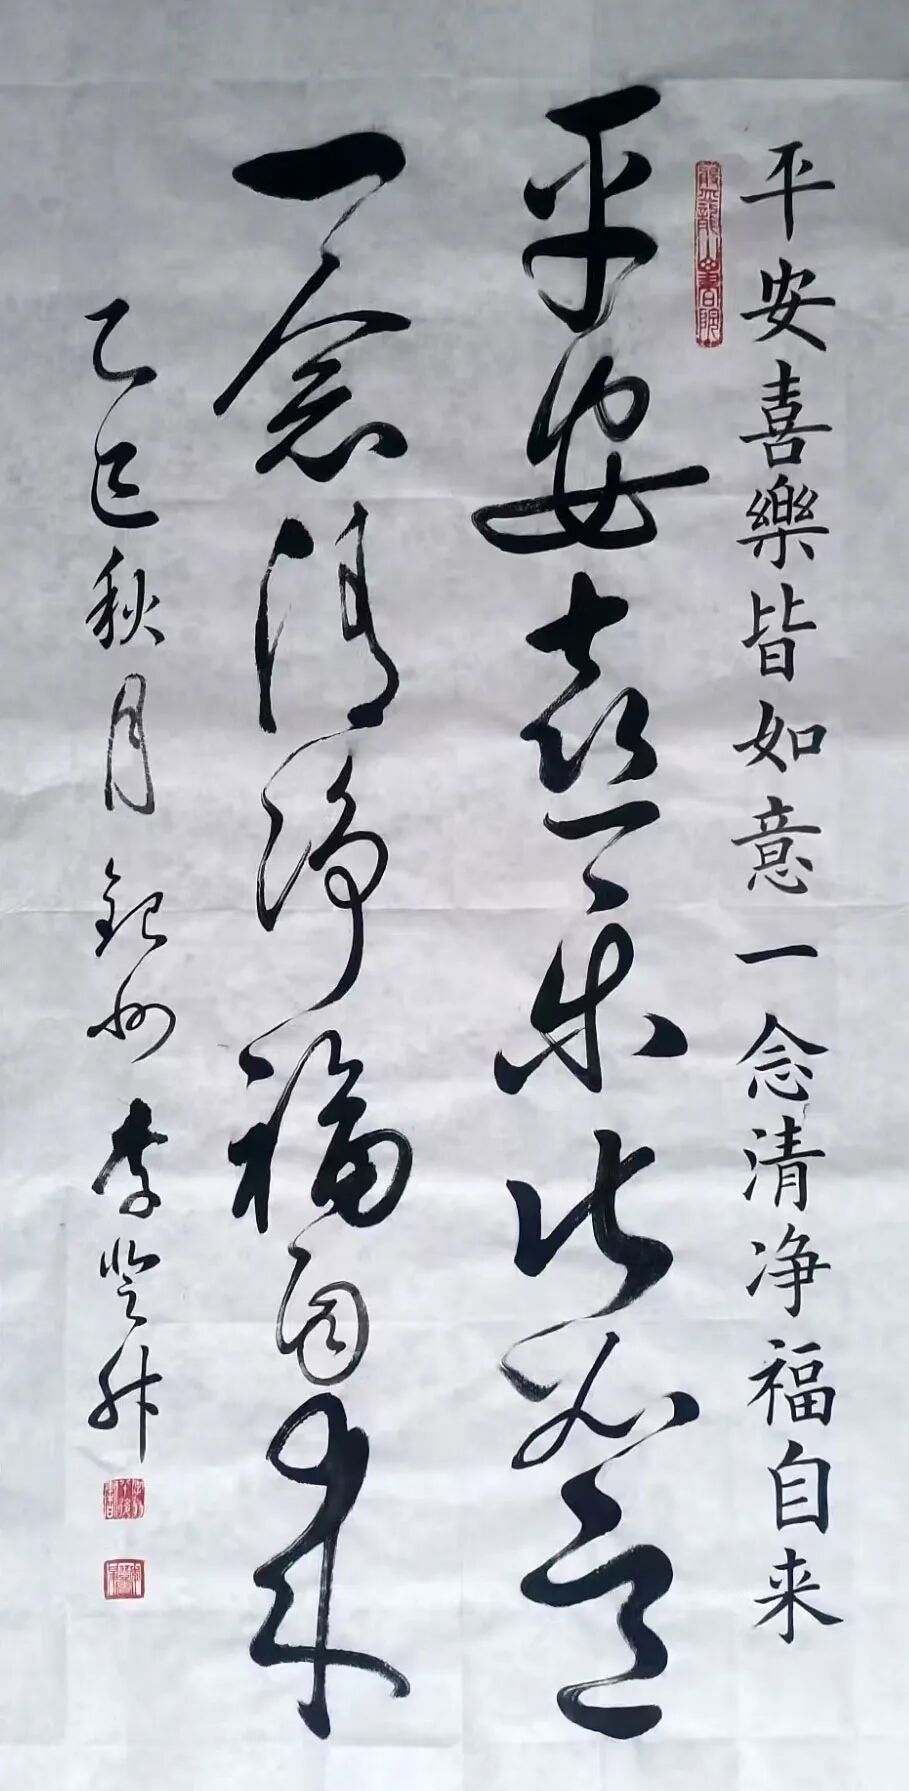 平安喜樂皆如意一念清净福自来
龍山書院
平安喜乐皆如意
一念清净福自来
乙巳秋月 州 李登升